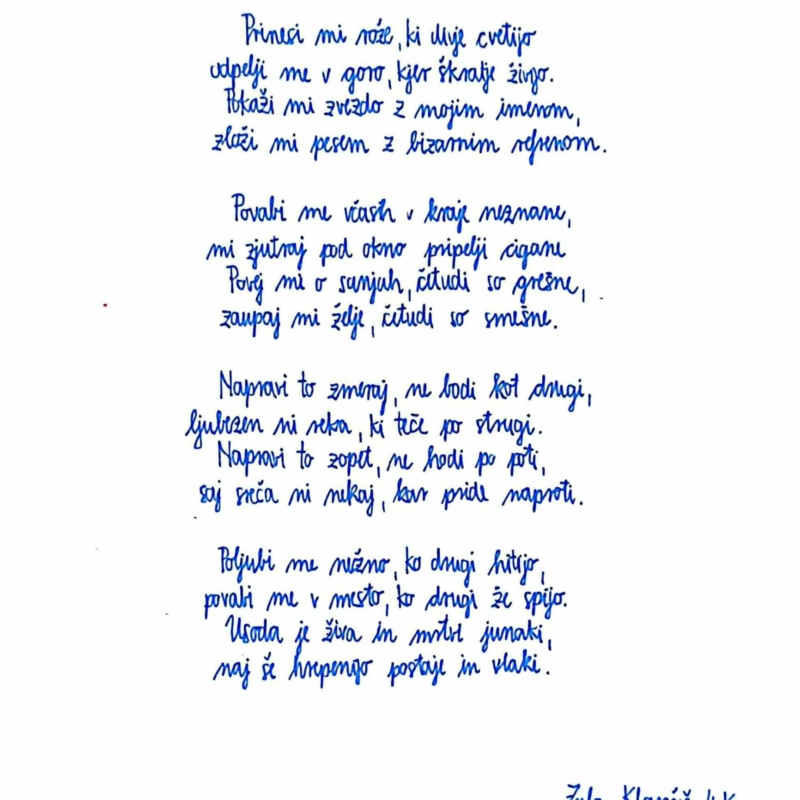 Prinesi mi rože, ki divje cvetijo
odpelji me v goro, kjer škratje živijo.
Pokaži mi zvezdo z mojim imenom,
zloži mi pesem z bizarnim refrenom.
Povabi me včasih v kraje neznane,
mi zjutraj pod okno pripelji cigane
Povej mi o sanjah, četudi so grešne,
zaupaj mi želje, četudi so smešne.
Napravi to zmeraj, ne bodi kot drugi,
ljubezen ni reka, ki teče po strugi.
Napravi to zopet, ne hodi po poti,
saj sreča ni nekaj, kar pride naproti.
Poljubi me nežno, ko drugi hitijo,
povabi me v mesto, ko drugi že spijo.
Usoda je živa in mrtvi junaki,
naj še hrepenijo postaje in vlaki.